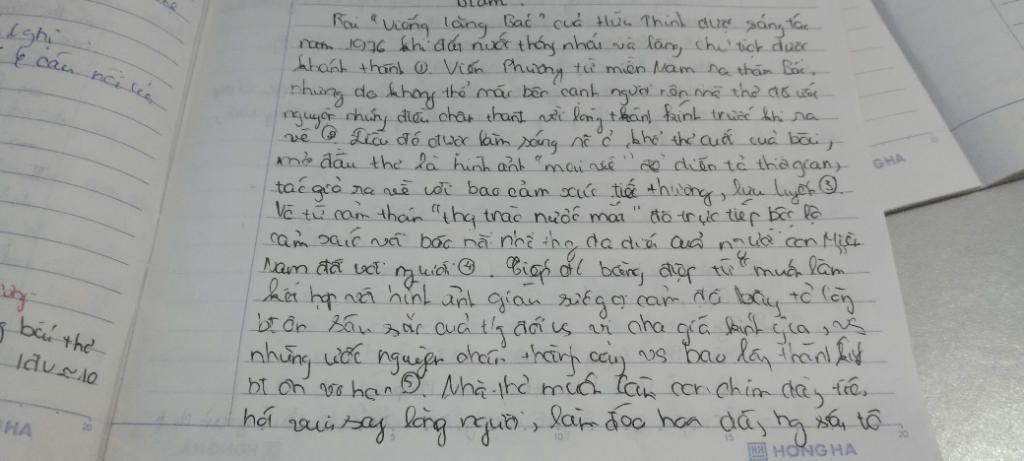 Bài "Viếng lăng Bác" của Hữu Thỉnh được sáng tác
năm 1976 khi đất nước thống nhất và lăng chủ tịch được
khánh thành ①. Viễn Phương từ miền Nam ra thăm Bác,
nhưng do không thể mãi bên cạnh người nên nhà thơ đã ước
nguyện những điều chân thành với lòng thành kính trước khi ra
về ②. Điều đó được làm sáng rõ ở khổ thơ cuối của bài,
mở đầu thơ là hình ảnh "mai về" để diễn tả thời gian,
tác giả ra về với bao cảm xúc tiếc thương, lưu luyến ③.
Về từ cảm thán "thg trào nước mắt" đã trực tiếp bộc lộ
cảm xúc với bác nỗi nhớ thg da diết của người con Miền
Nam đối với người ④. Điệp từ "muốn làm
kết hợp với hình ảnh giản gợi cảm đã bày tỏ lòng
bt ơn sâu sắc của t/g đối vs vị cha già kính yêu, và
những ước nguyện chân thành cùng vs bao lòng thành kính
bt ơn vô hạn ⑤. Nhà thơ muốn làm con chim
hót say lòng người, làm đóa hoa
nghị
câu nói
bài thơ
HONG HA
GHA
HA
20